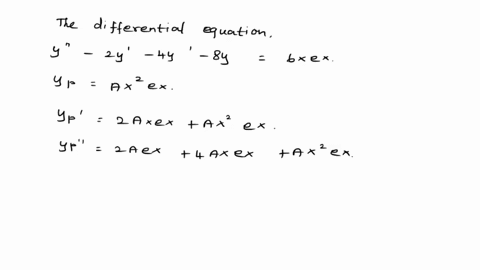 The differential equation.
y" - 2y' - 4y' - 8y = 6xex.
yp = Ax²ex.
yp' = 2Axex + Ax² ex.
yp" = 2Aex + 4Axex + Ax²ex.